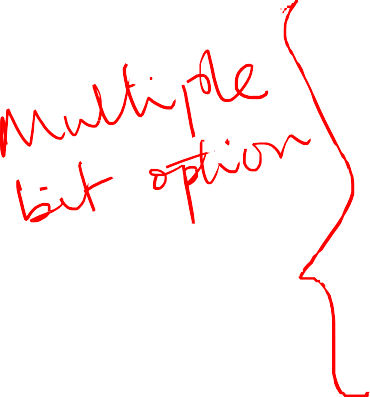 Multiple
bit option